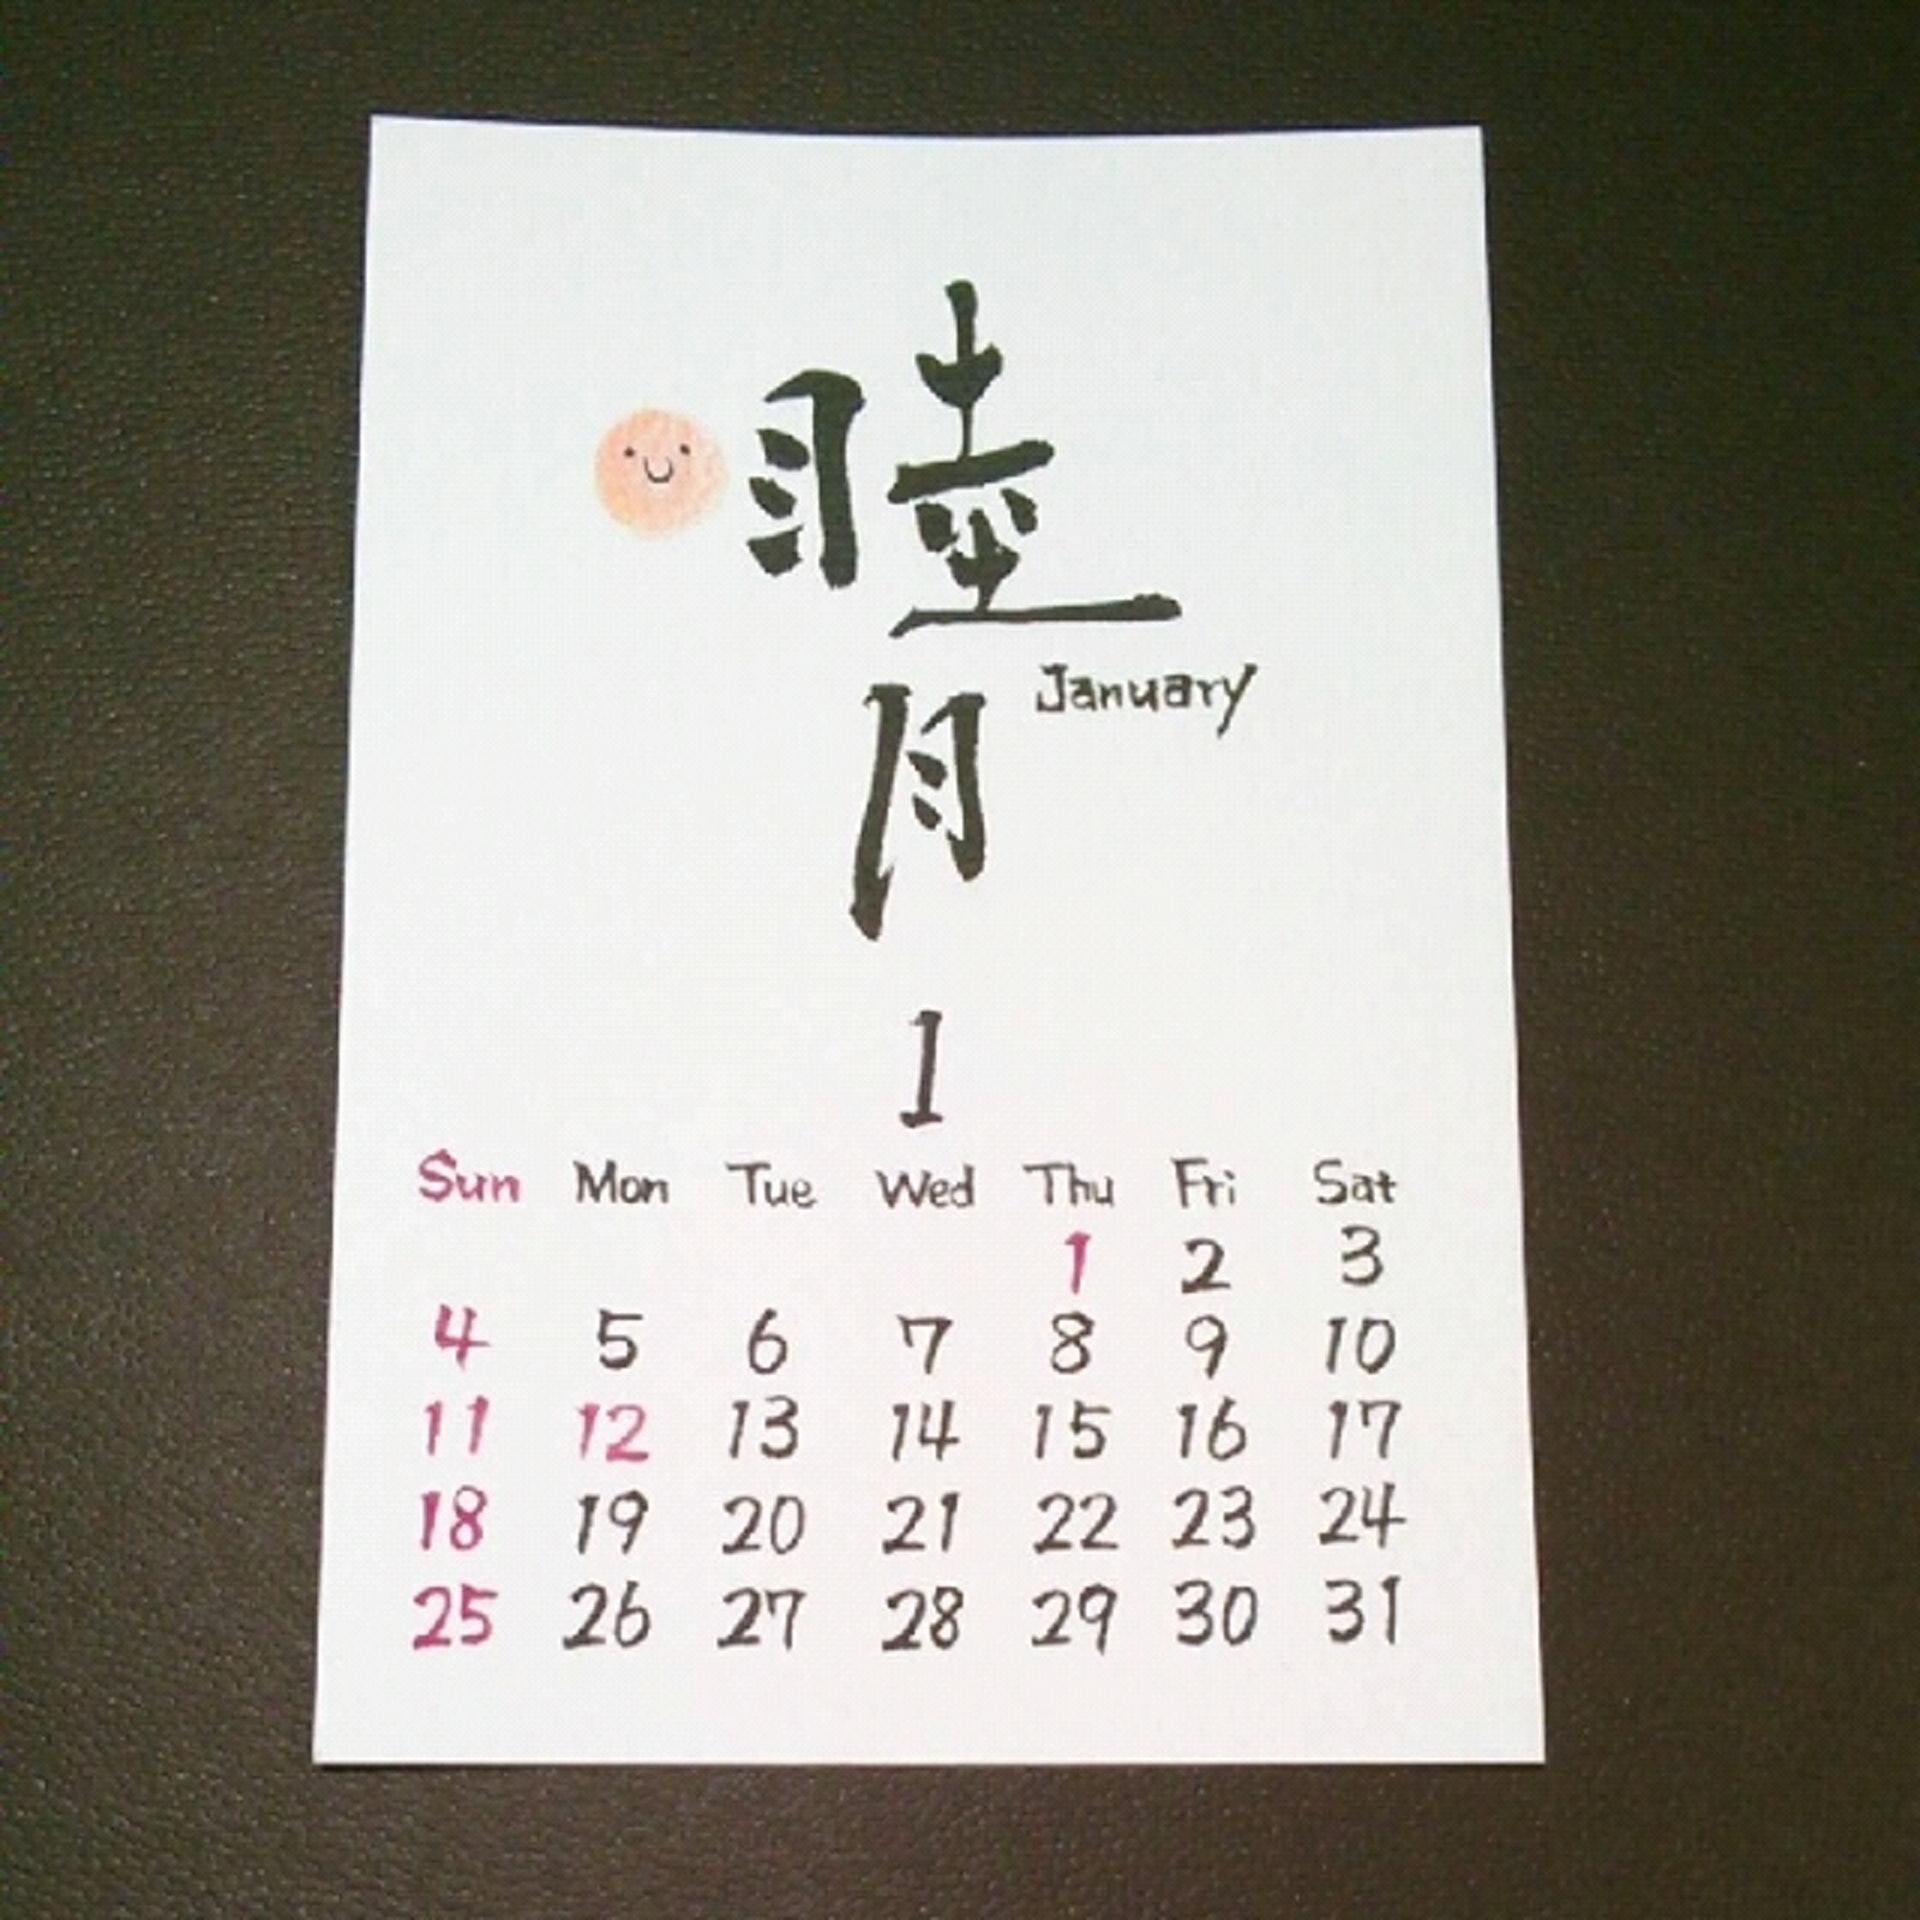 睦月
January
1
Sun Mon Tue Wed Thu Fri Sat
1 2 3
4 5 6 7 8 9 10
11 12 13 14 15 16 17
18 19 20 21 22 23 24
25 26 27 28 29 30 31